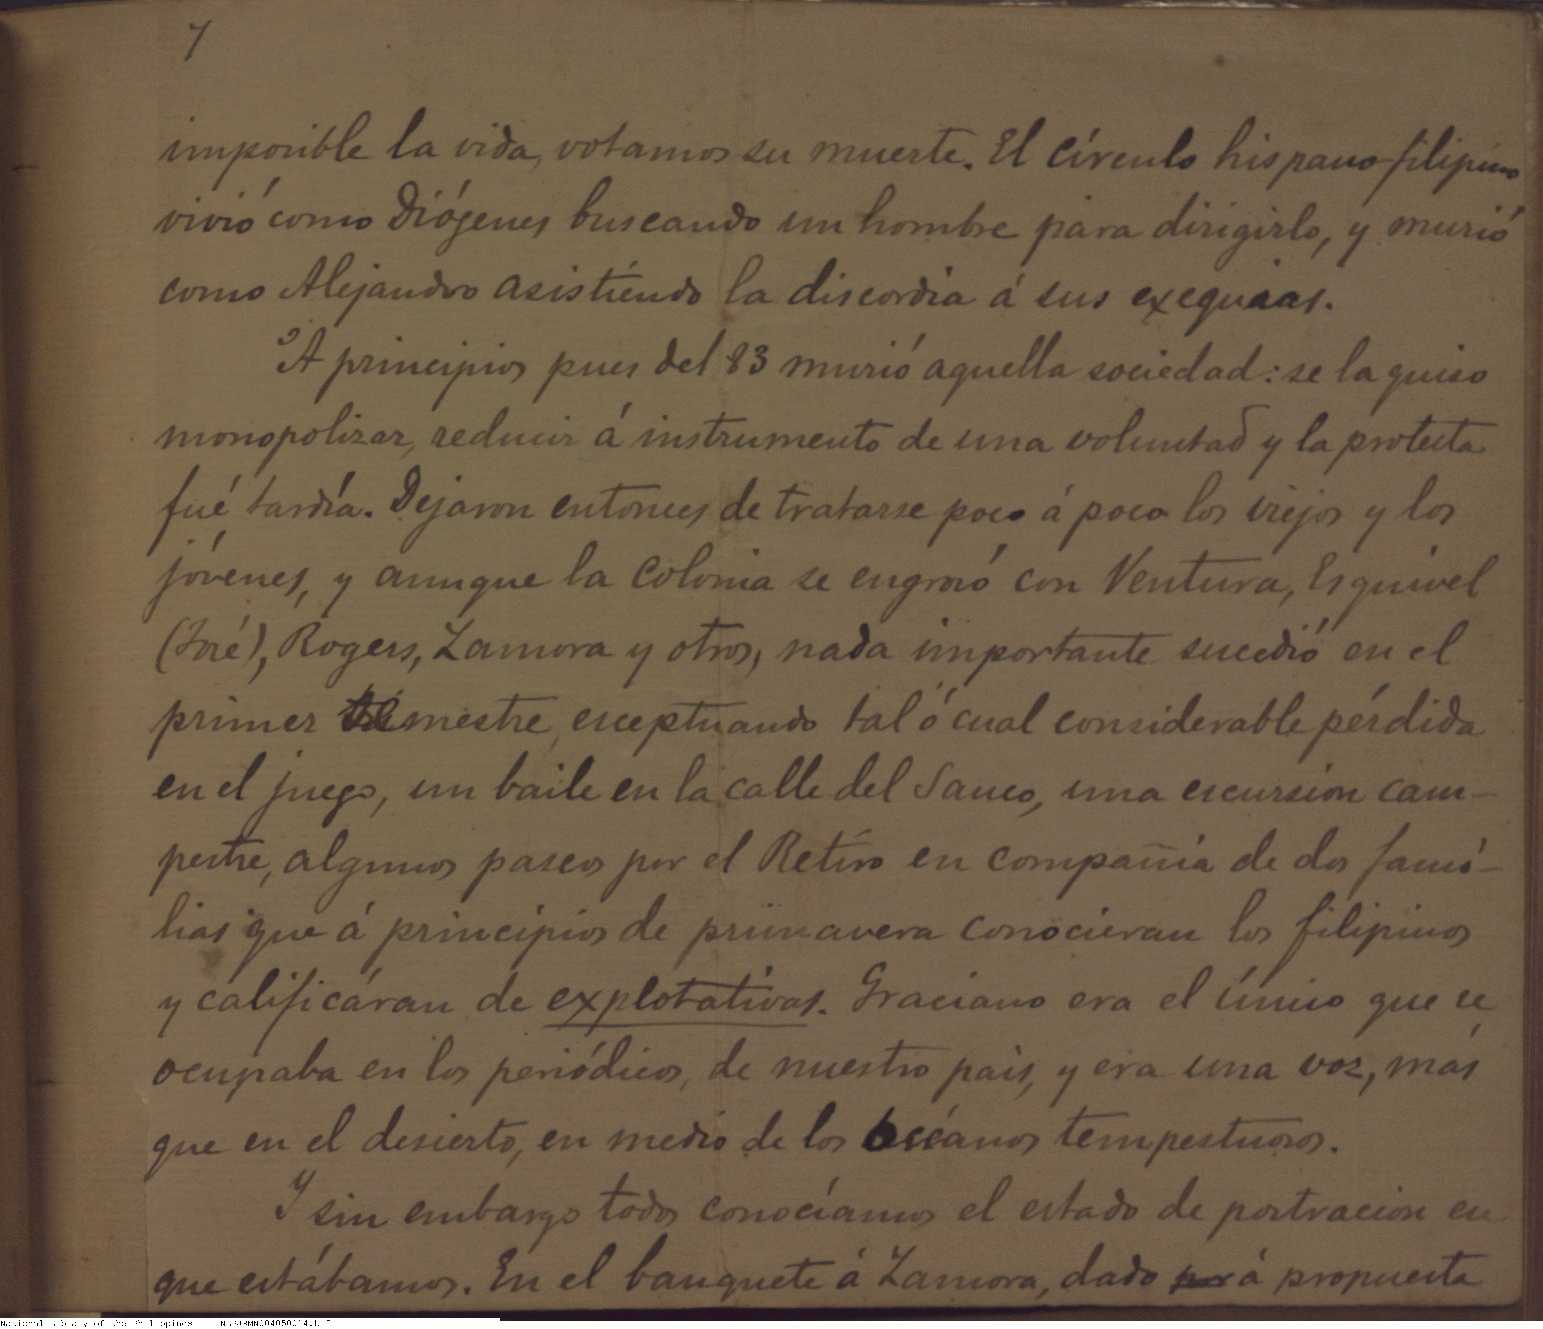 7
imposible la vida, votamos su muerte. El círculo hispano-filipino
vivió como Diógenes buscando un hombre para dirigirlo, y murió
como Alejandro asistiendo la discordia á sus exequias.
A principios pues del 83 murió aquella sociedad: se la quiso
monopolizar, reducir á instrumento de una voluntad y la protesta
fué tardía. Dejaron entonces de tratarse poco á poco los viejos y los
jóvenes, y aunque la colonia se engrosó con Ventura, Esquivel
(José), Rogers, Zamora y otros, nada importante sucedió en el
primer semestre, esceptuando tal ó cual considerable pérdida
en el juego, un baile en la calle del Sauco, una escursion cam-
pestre, algunos paseos por el Retiro en compañía de dos fami-
lias que á principios de primavera conocieran los filipinos
y calificáran de explotativas. Graciano era el único que se
ocupaba en los periódicos, de nuestro país, y era una voz, más
que en el desierto, en medio de los océanos tempestuosos.
Y sin embargo todos conocíamos el estado de postracion en
que estábamos. En el banquete á Zamora, dado á propuesta
National Library of the Philippines